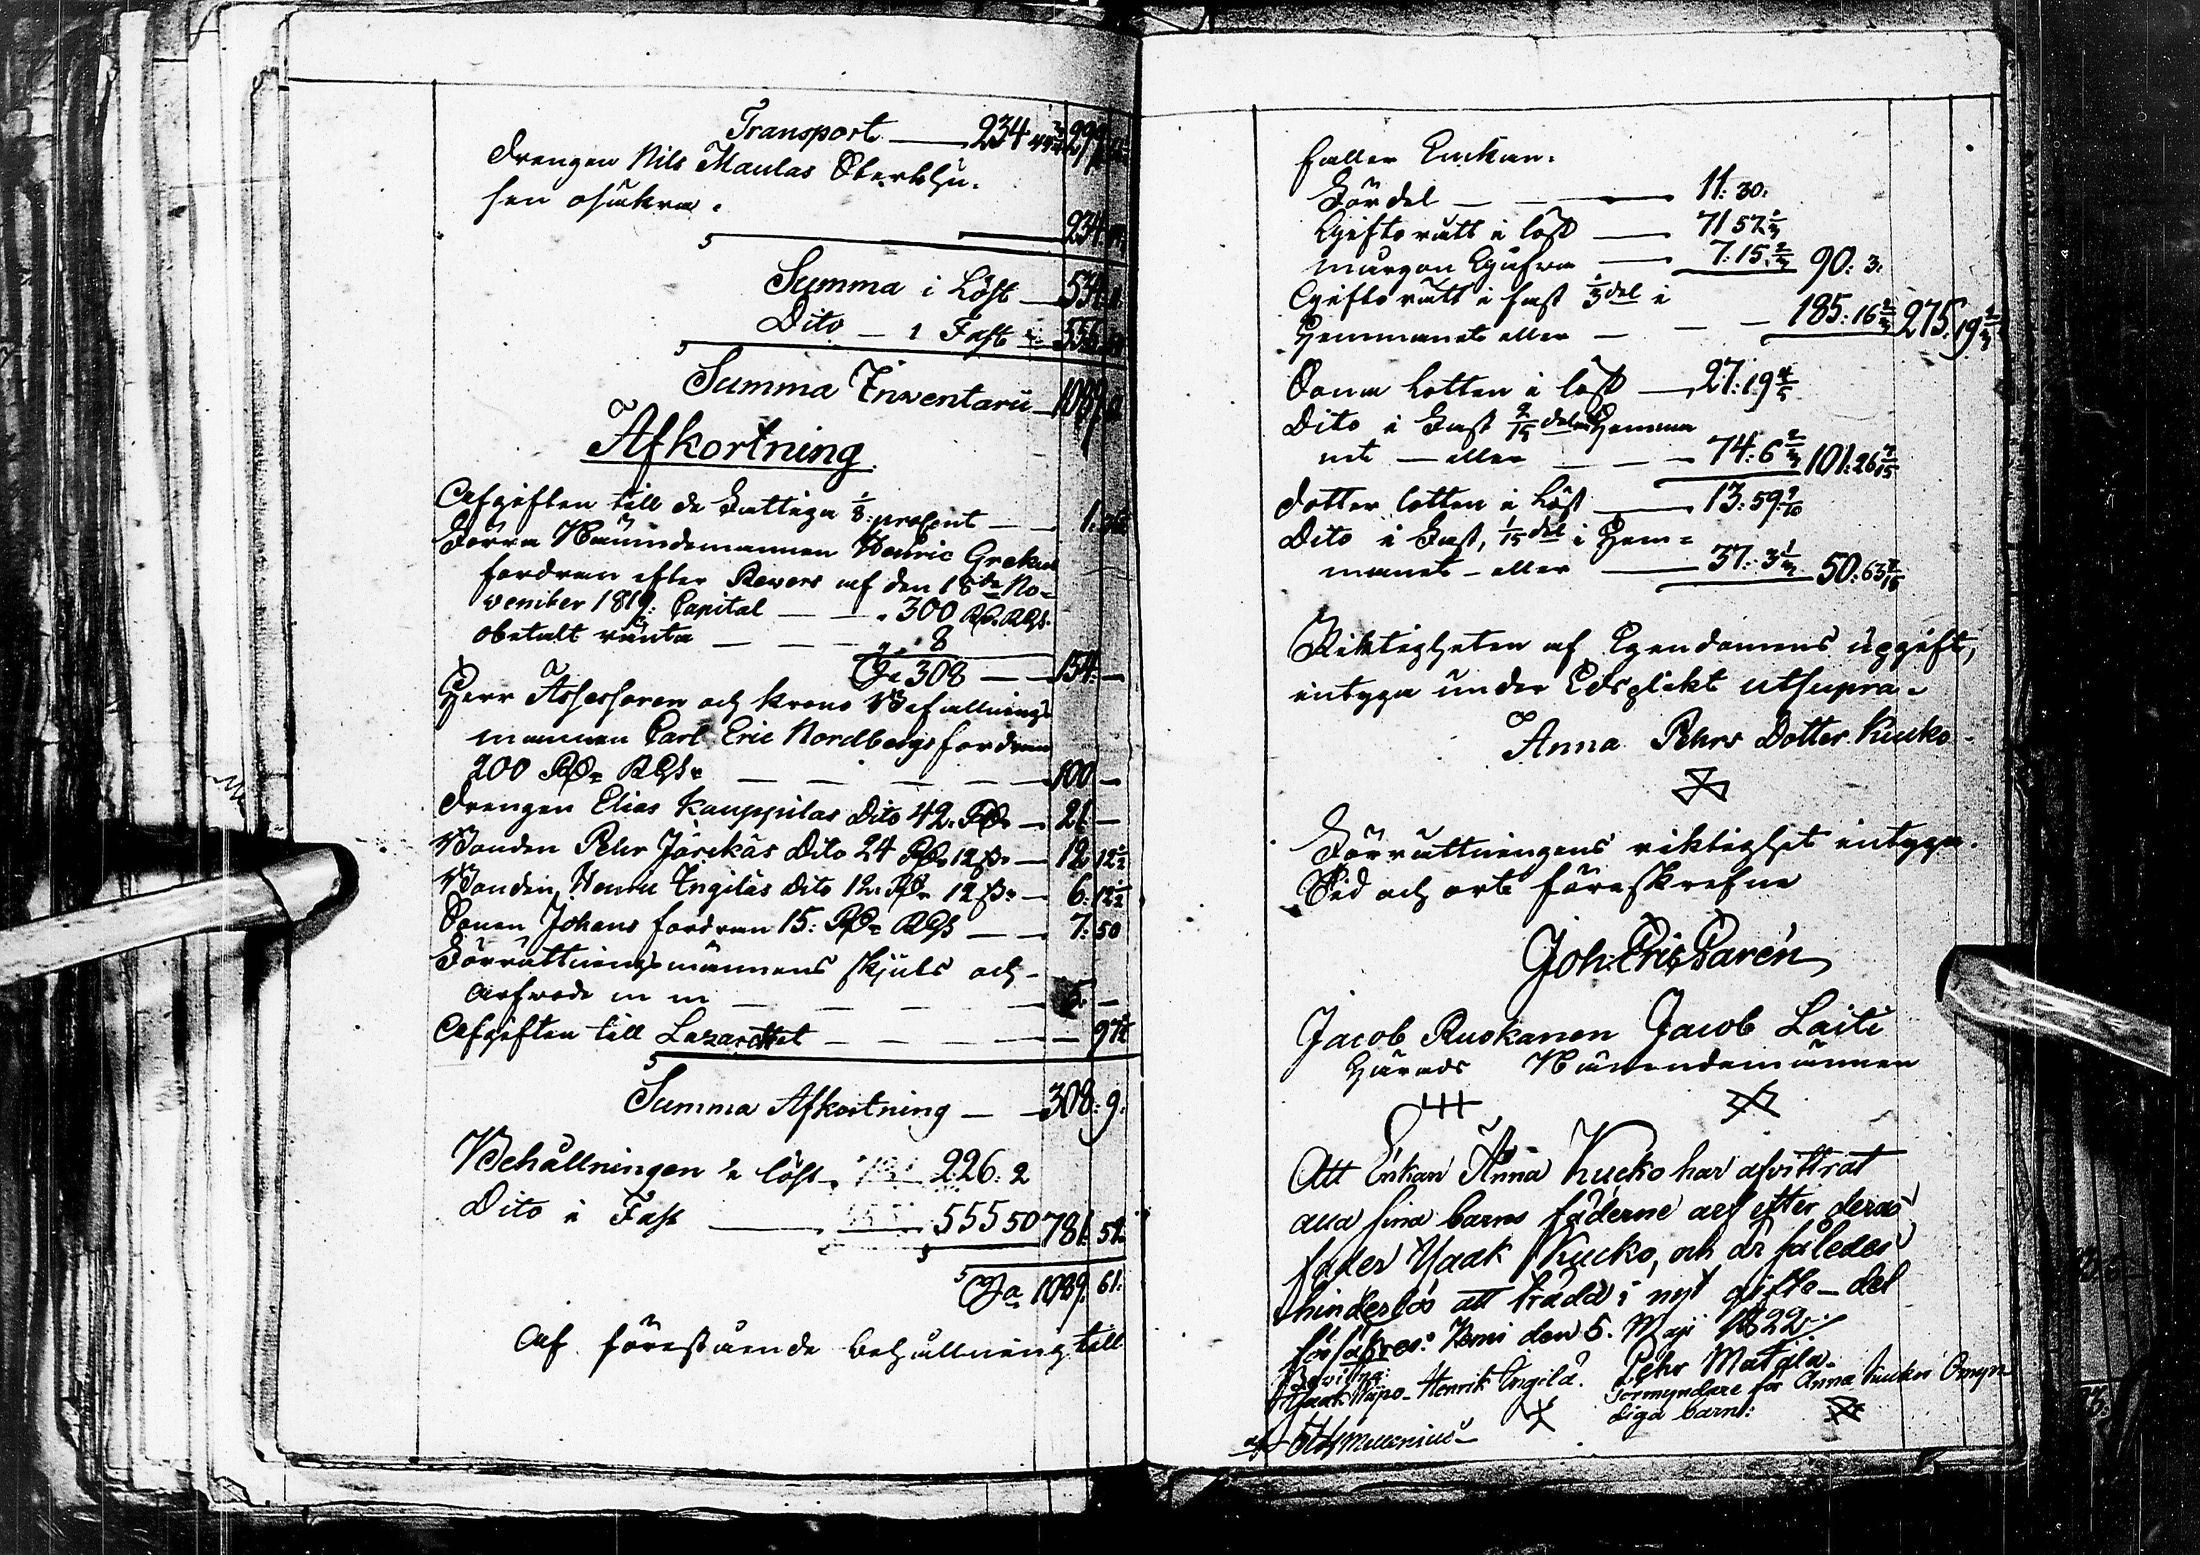 Transport — 234 44 299
Drengen Nils Maulas Återblju-
sen osäkra.
234
Summa i Löst — 534
Dito — i Fast — 555
Summa Inventarii — 1089
Afkortning
Afgiften till de Fattiga 1/8 procent — 1:
Förra Nämndemannen Henric Grekus
fordran efter Revers af den 18de No-
vember 1819: Capital — 300 RD. RGs.
obetalt ränta — 8
Sa 308 — 154. —
Herr Assessoren och Krono Befallnings
mannen Carl Eric Nordbergs fordran
200 RD. RGs. — 100 —
Drengen Elias Kauppilas Dito 42. RD. — 21 —
Bonden Pehr Järckäs Dito 24 RD. 12 s. — 12 12 1/2
Bonden Henric Ingiläs Dito 12. RD. 12 s. — 6: 12 1/2
Sonen Johans fordran 15: RD. RGs — 7: 50
Förrättningsmännens skjuts och
Arfvode m m — 5. —
Afgiften till Lazarettet — 9
Summa Afkortning — 308: 9.
Behållningen i löst 226. 2
Dito i Fast — 555 50 781: 52
Sa 1089. 61.
Af förestående behållning till
faller Enckan.
Fördel — 11: 30:
Giftorätt i löst — 71 57 1/3
Morgon Gåfva — 7: 15 2/3 90: 3:
Giftorätt i fast 1/3 del i
Hemmanet eller — 185: 16 2/3 275. 19 2/3
Sona Lotten i löst — 27: 19 4/5
Dito i Fast 2/15 delar Hemma
net — eller — 74: 6 2/3 101: 26 7/15
Dotter lotten i Löst — 13: 59 9/10
Dito i Fast, 1/15 del i Hem=
manet — eller — 37: 3 1/3 50: 63
Riktigheten af Egendomens upgift,
intyga under Edsplikt utsupra.
Anna Pehrs Dotter Kucko
Förrättningens riktighet intyga.
Tid och ort föreskrefne
Joh: Eric Parén
Jacob Ruokanen Jacob Laiti
Härads Nämndemännen
Att Enkan Anna Kucko har afvittrat
alla sina barns fäderne arf efter deras
fader Isaak Kucko, och är således
hinderlös att träda i nytt gifte — det
försäkras: Kemi den 5. Maji 1822./.
Bevittna: Pehr Matala.
Isaak Näpo. Henrik Ingilä. Förmyndare för Anna Kuckos Omyn-
diga barn: